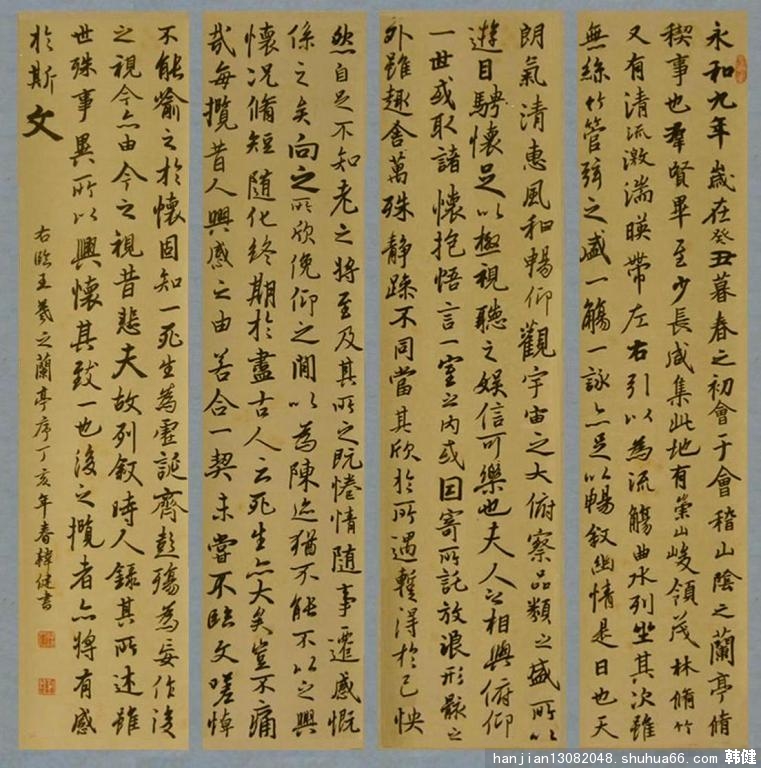 永和九年歲在癸丑暮春之初會于會稽山陰之蘭亭脩
稧事也羣賢畢至少長咸集此地有崇山峻領茂林脩竹
又有清流激湍暎帶左右引以為流觴曲水列坐其次雖
無絲竹管弦之盛一觴一詠亦足以暢叙幽情是日也天
朗氣清惠風和暢仰觀宇宙之大俯察品類之盛所以
遊目騁懷足以極視聽之娛信可樂也夫人之相與俯仰
一世或取諸懷抱悟言一室之內或因寄所託放浪形骸之
外雖趣舍萬殊靜躁不同當其欣於所遇暫得於己怏
然自足不知老之將至及其所之既惓情隨事遷感慨
係之矣向之所欣俛仰之閒以為陳迹猶不能不以之興
懷況脩短隨化終期於盡古人云死生亦大矣豈不痛
哉每攬昔人興感之由若合一契未嘗不臨文嗟悼
不能喻之於懷固知一死生為虛誕齊彭殤為妄作後
之視今亦由今之視昔悲夫故列叙時人錄其所述雖
世殊事異所以興懷其致一也後之攬者亦將有感
於斯文
右臨王羲之蘭亭序丁亥年春韓健書
hanjian13082048.shuhua66.com 韩健